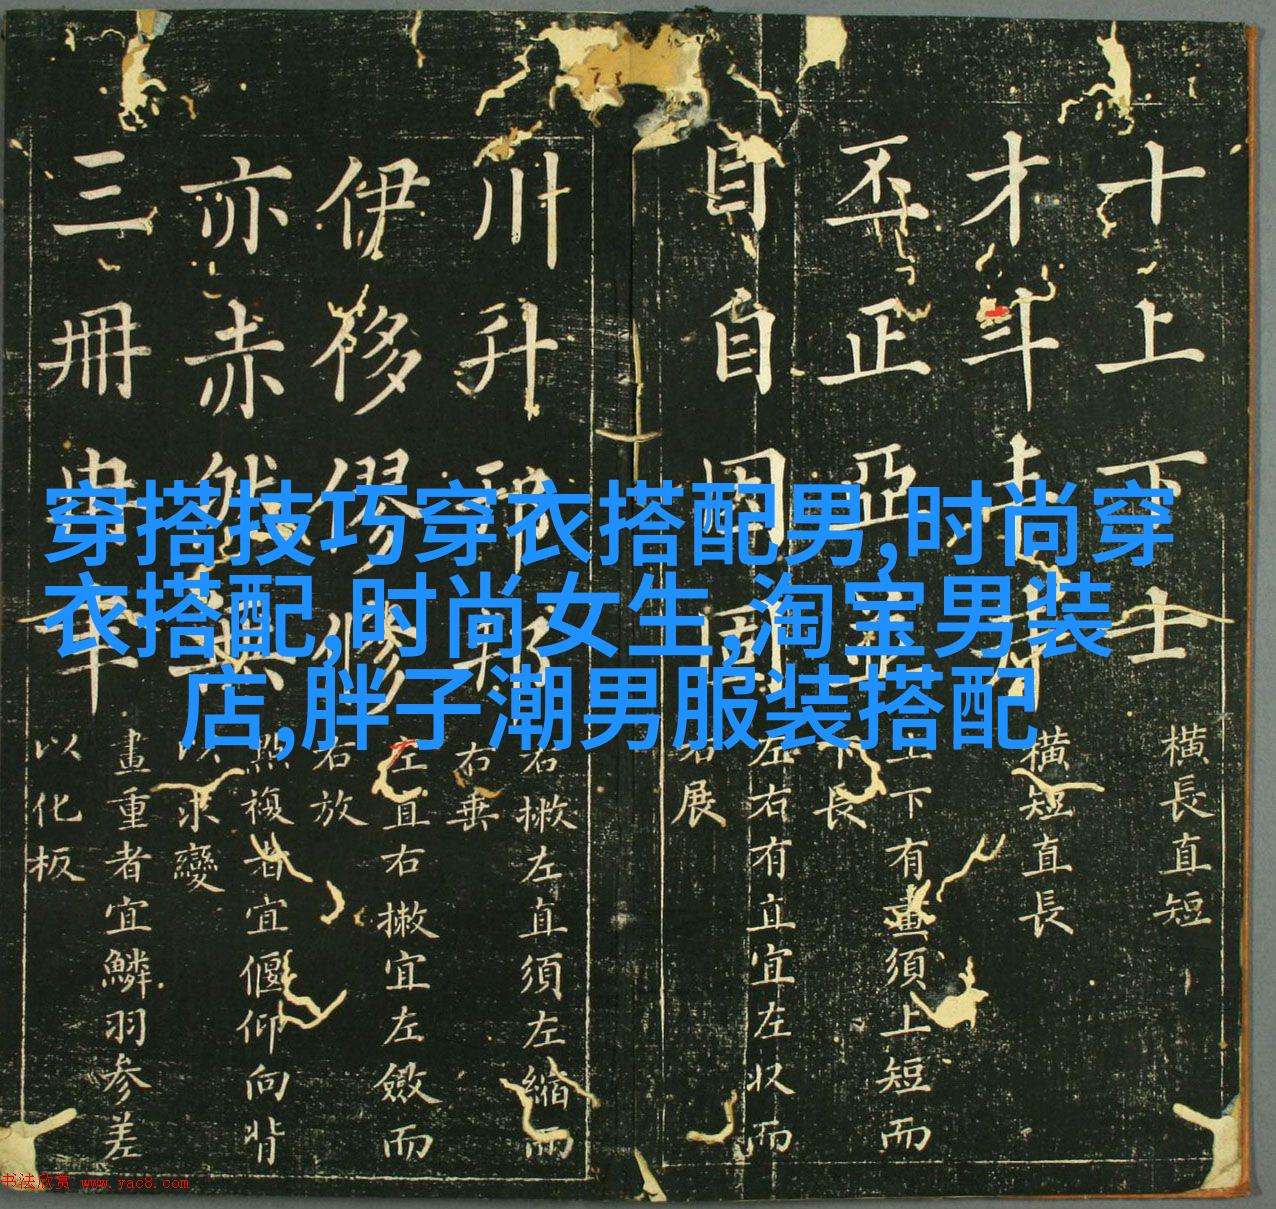 穿搭技巧穿衣搭配男,时尚穿
衣搭配,时尚女生,淘宝男装
店,胖子潮男服装搭配
十上下士
橫長直短
才斗
橫短直長
丕正亞
上下有畫須上短而
下長
目自因固
左右有直宜左收而
右展
川升
右撇左直須左縮而
右垂
伊侈僇修
左直右撇宜左斂而
右放
亦赤然無
點複者宜偃仰向背
以求變
三冊
畫重者宜鱗羽參差
以化板
书法欣赏 www.yac8.com